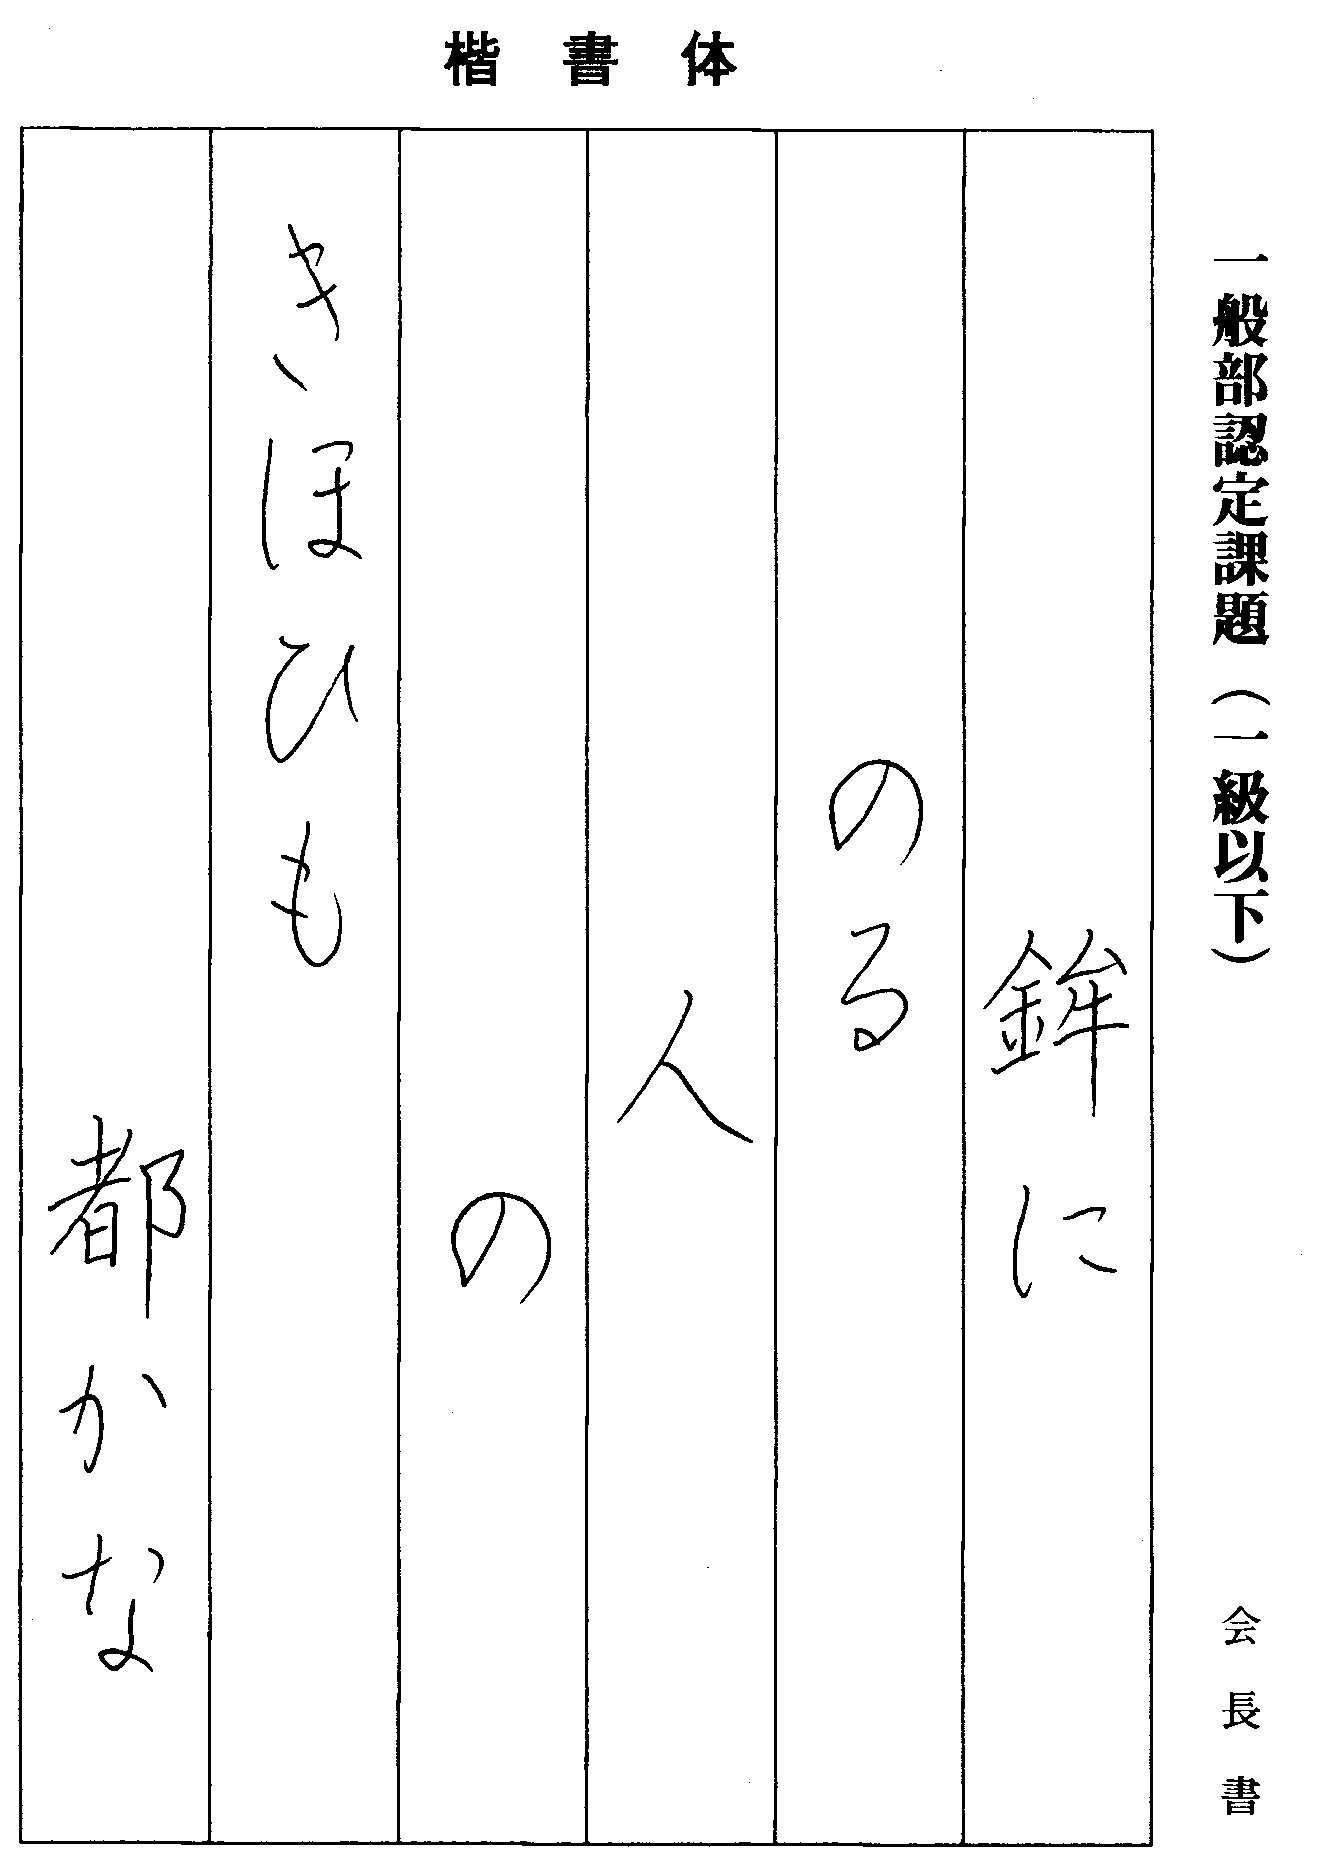 楷書体
一般部認定課題（一級以下）
会長書
鉾に
のる
人
の
きほひも
都かな